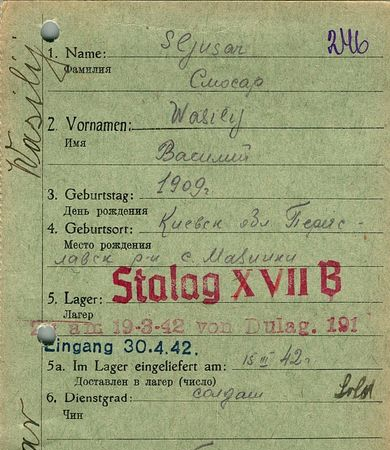 246
1. Name: Sljusar
Фамилия
Слюсар
2. Vornamen: Wasilij
Имя
Василий
3. Geburtstag: 1909г
День рождения
4. Geburtsort: Киевск обл Переяс-
Место рождения
лавск р-н с.
5. Lager: Stalag XVII B
Лагер
am 19-3-42 von Dulag. 191
Eingang 30.4.42.
5a. Im Lager eingeliefert am: 15 III 42г.
Доставлен в лагер (число)
6. Dienstgrad: солдат Sold
Чин
Wasilij